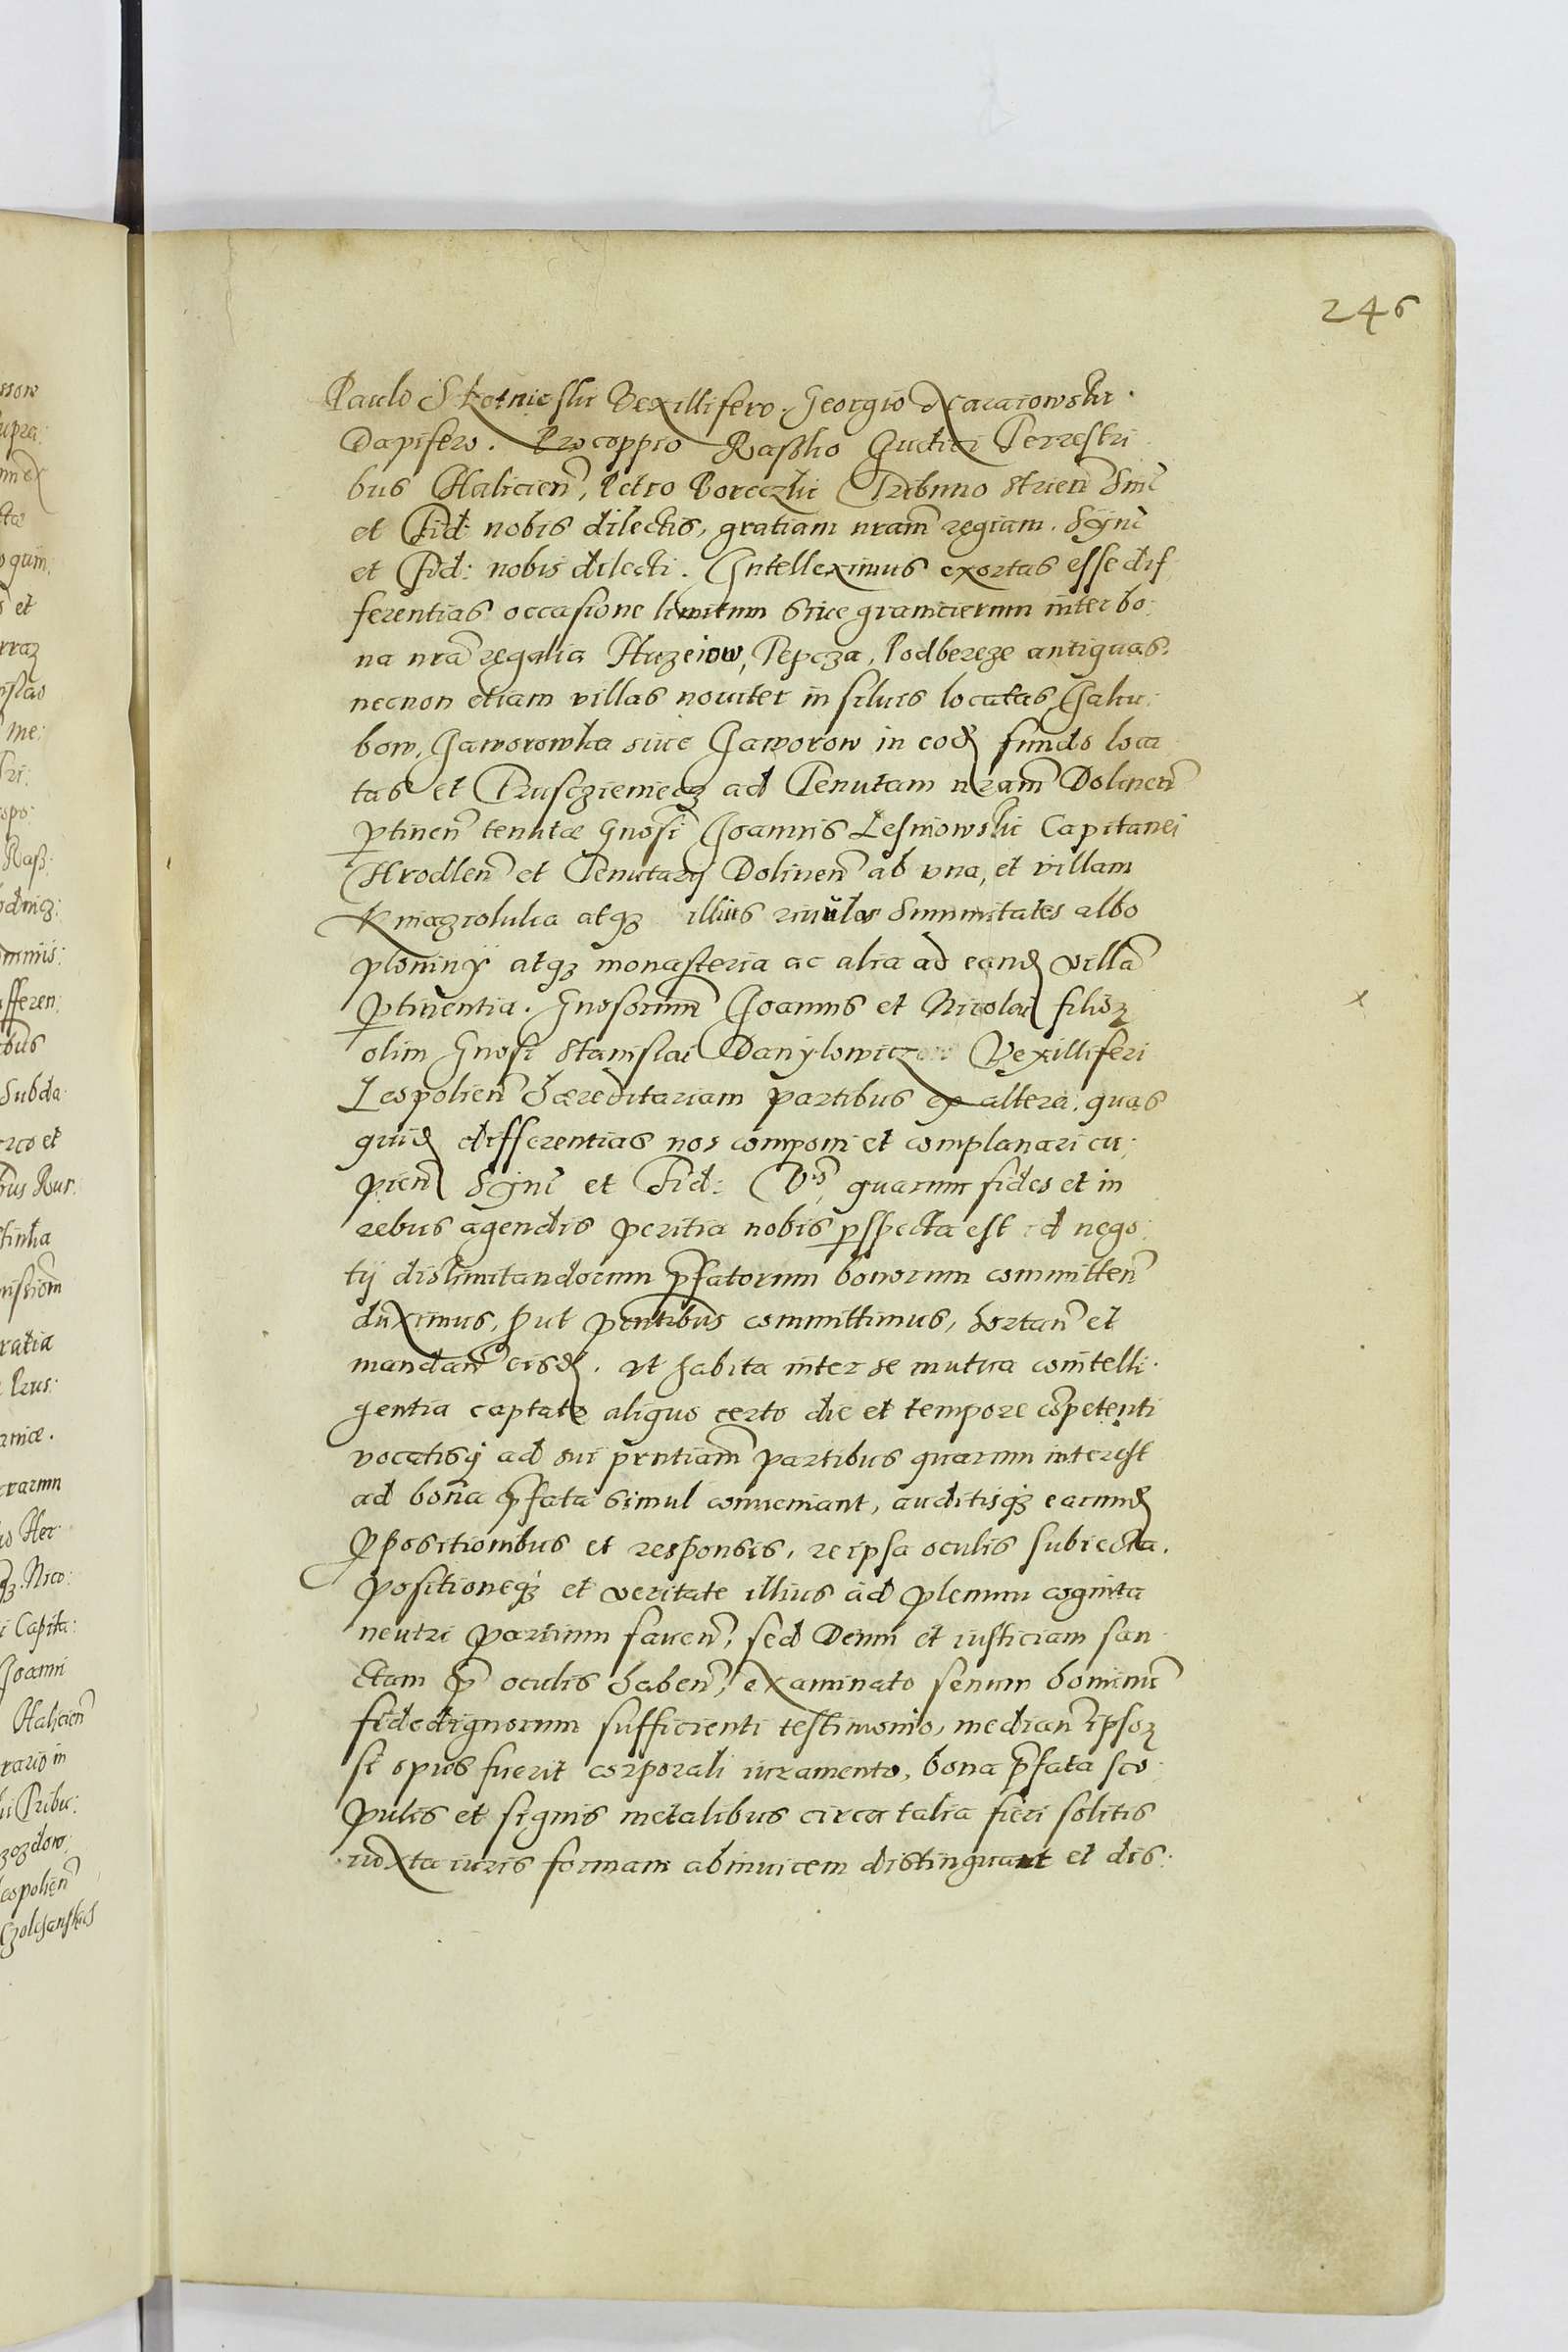 246
Paulo Skotnicski Vexillifero. Georgio
Dapifero. Procoppio Raßko Iudici Terrestri
bus Halicien̄, Petro Boreczki Tribuno Strien̄ Sinc̄
et Fid: nobis dilectis, gratiam nram̄ regiam. Sync̄
et Fid: nobis dilecti. Intelleximus exortas esse dif
ferentias occasione limitum siue granicierum inter bo:
na nrā regalia Huzeiow, Tepcza, Podbereze antiquas.
necnon etiam villas nouiter in siluis locatas, Jaku:
bow, Jaworowka siue Jaworow in eod fundo loca
tas et Trusczieniecz ad Tenutam nram̄ Dolinen̄
ptinen̄ tenutæ Gnosi Joannis Lesniowski Capitanei
Hrodlen̄ et Tenutarij Dolinen̄ ab vna, et villam
Kniazioluka atqz illius summitates albo
ploniny atqz monasteria ac alia ad eand villā
ptinentia. Gnosorum Joannis et Nicolai filioz
olim Gnosi Stanislai Danylowicz Vexilliferi
Leopolien̄ hæreditariam partibus ex altera. quas
quid differentias nos componi et complanari cu:
pien̄ Sync̄ et Fid: Vs, quarum fides et in
rebus agendis peritia nobis pspecta est id nego:
tij dislimitandorum pfatorum bonorum committen̄
duximus, put pentibus committimus, hortan̄ et
mandan̄ eisd. vt habita inter se mutua cointelli:
gentia captato aliquo certo die et tempore cōpetenti
vocatisq ad sui prntiam̄ partibus quarum interest
ad bona pfata simul conueniant, auditisqz earund
ppositionibus et responsis, re ipsa oculis subiecta.
positioneqz et veritate illius ad plenum cognita
neutri partium fauen̄, sed Deum et iusticiam san
ctam p̄ oculis haben̄, examinato senum hominū
fidedignorum sufficienti testimonio, median̄ ipsoz
si opus fuerit corporali iuramento, bona pfata sco:
pulis et signis metalibus circa talia fieri solitis
iuxta iuris formam abinuicem distinguant et dis: